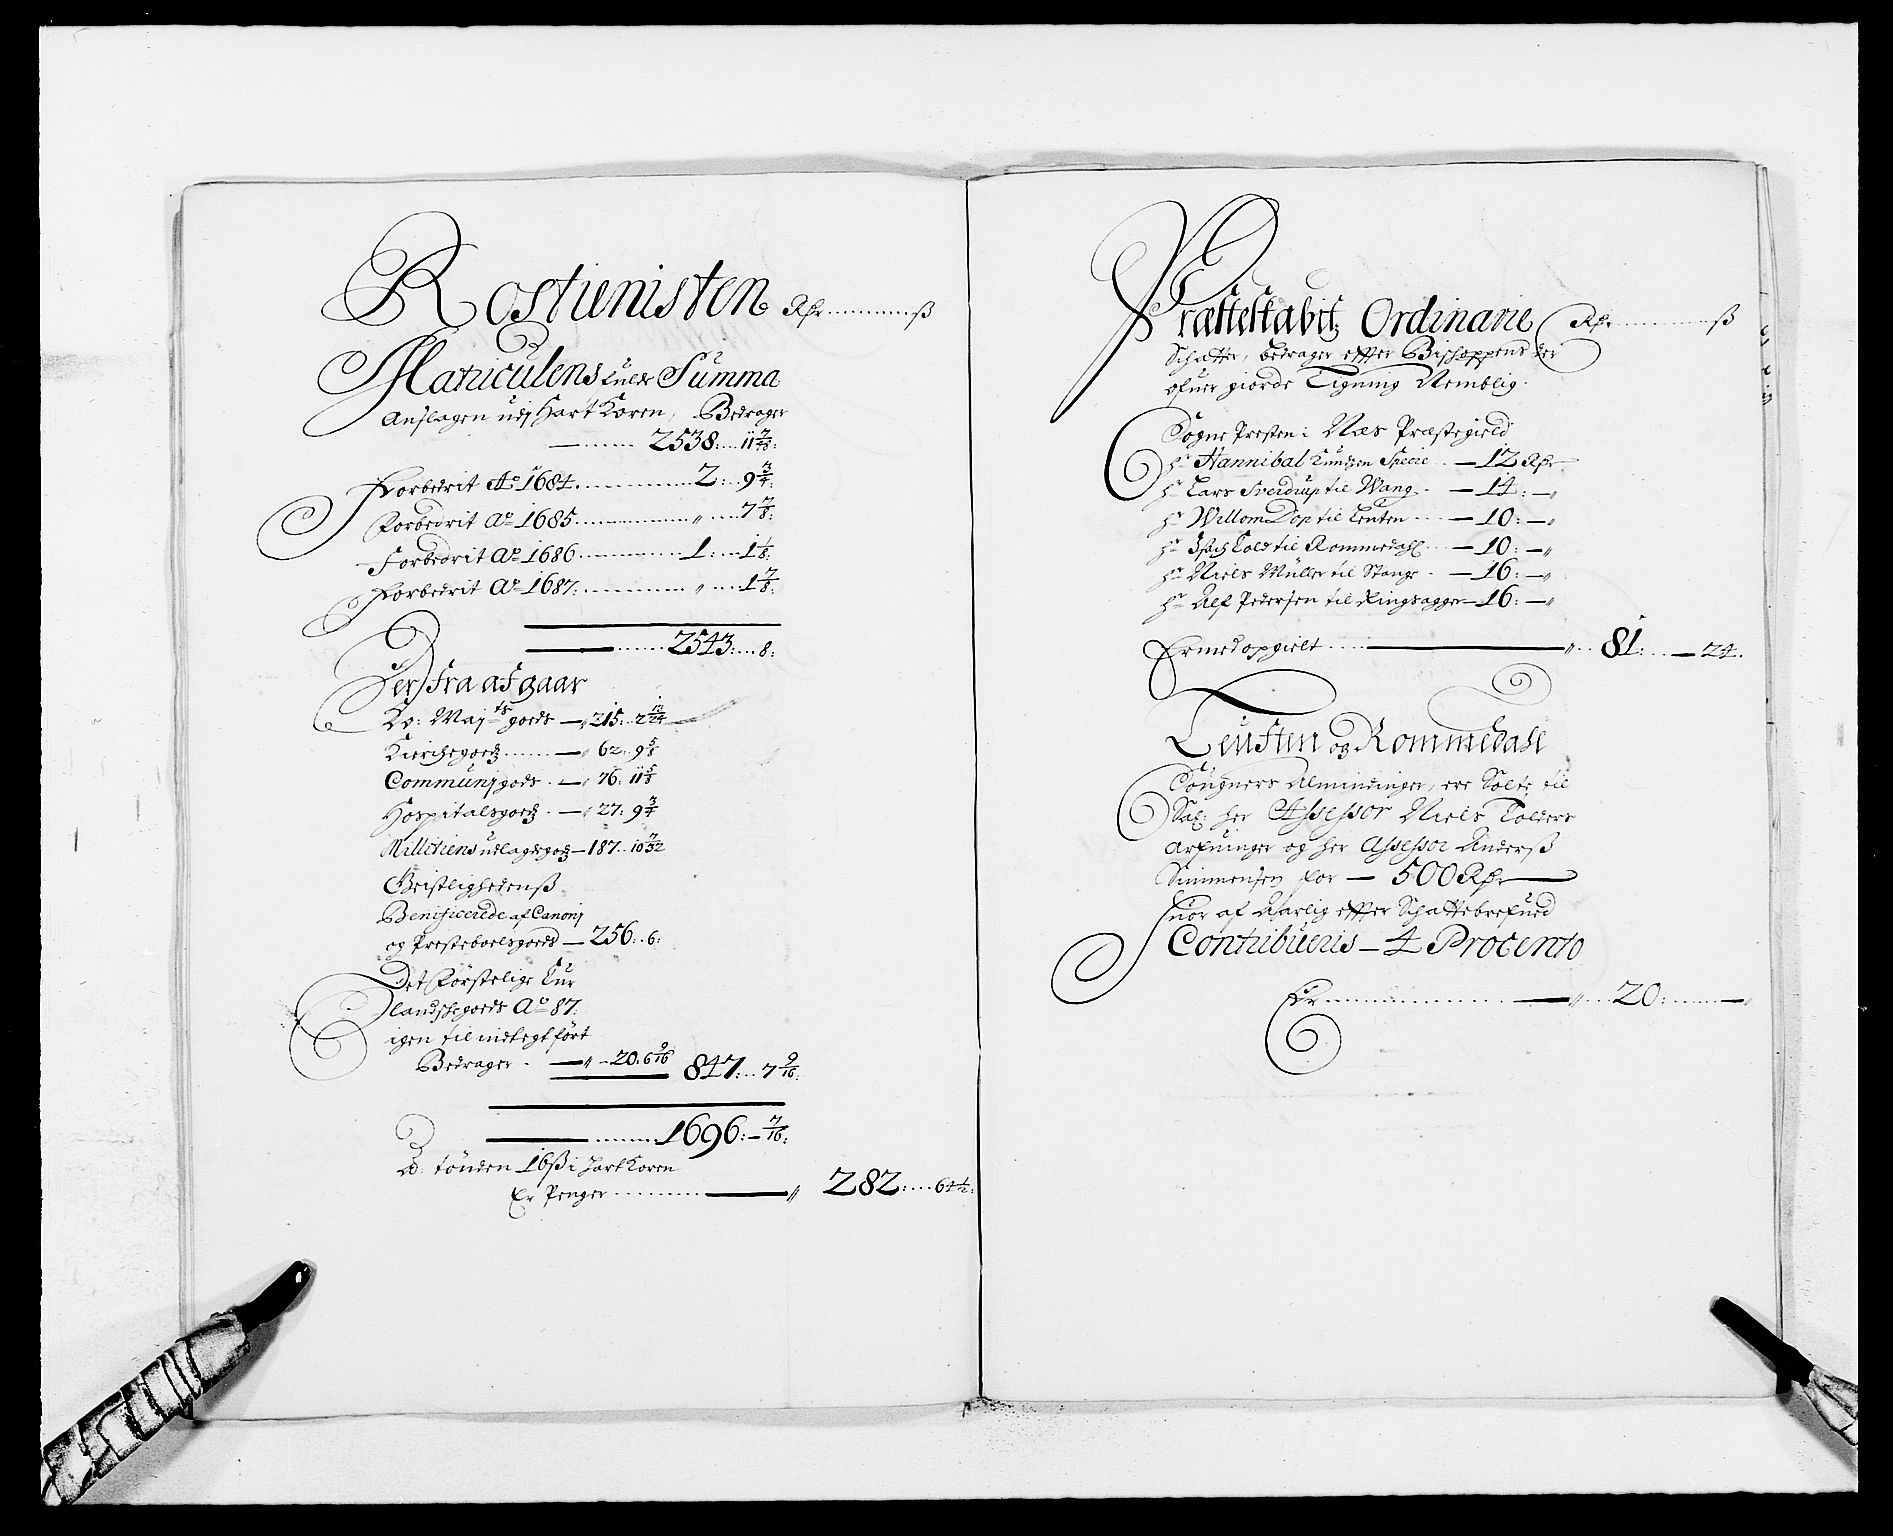 Rostienisten Rdr ß
Matriculens fulde Summa
Anslagen udj Hart Koren, Bedrager
2538: 11 7/48:
Forbedrit Ao 1684. 2: 9 3/4:
Forbedrit Ao 1685 „ 7 7/8:
Forbedrit Ao 1686 1: 1 1/8:
Forbedrit Ao 1687: „ 1 7/8:
2543: 8:
Her fra afgaar
Ko: Maj ts goeds — „ 215: 2 13/24
Kirchegoeds — „ 62: 9 5/8
Communj gods — „ 76: 11 5/8
Hospitalsgoeds — „ 27: 9 3/4
Millitiens udlagdgods — 187: 10 7/32
Geistlighedenß
Benificerede af Canonj
og Presteboelsgoeds — 256: 6:
Det Förstelige Cur
landschegoeds Ao 87:
igen til indtegt fört
Bedrager — „ 20: 6 9/16 847: 7 9/16:
1696: — 7/16:
Ad: tönden 16 ß i Hart Koren
Er Penger — „ 282: 64 1/2:
Præsteskabets Ordinarie Rdr ß
Schatter, bedrager effter Bischoppens der
ofuer giorde Ligning Nemblig.
Sogne Presten i Næs Præstegield
hr Hannibal Knudsen Specie — 12 Rdr
hr Lars Sverdrup til Wang — 14: — „
hr Willom Dop til Leuten — 10: — „
hr Isach Told til Rommedahl — 10: — „
hr Niels Müller til Stange — 16: — „
hr Alf Pedersen til Ringsagger — 16: — „
Ermed opgielt — „ 81: — 24.
Leuften og Rommedahl
Sougners Alminдinger, ere Solte til
Sal: her Assessor Niels Tolders
Arfuinger og her Assessor Anderß
Simmensen for — 500 Rdr
huor af Aarlig effter Schattebrefued
Contribueris — 4 Procento
Er — „ 20: — „